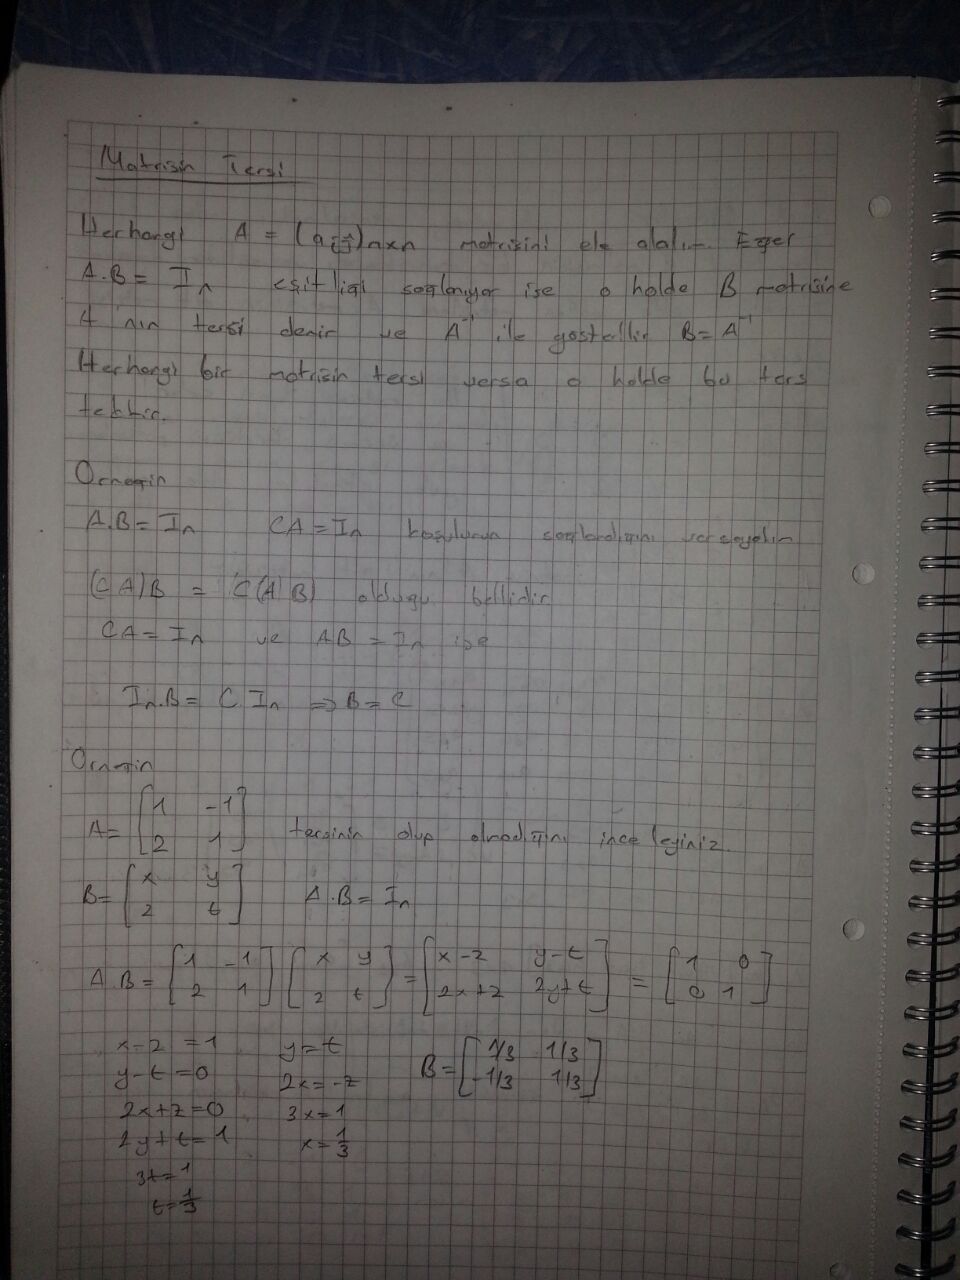 Matrisin Tersi
Herhangi A = (aij)nxn matrisini ele alalım Eğer
A.B = In eşitliği sağlanıyor ise o halde B matrisine
A nın tersi denir ve A⁻¹ ile gösterilir B = A⁻¹
Herhangi bir matrisin tersi varsa o halde bu ters
tektir.
Örneğin
A.B = In CA = In koşulunun sağlandığını varsayalım
(CA)B = C(AB) olduğu bellidir
CA = In ve AB = In ise
In.B = C In => B = C
Örneğin
A = [1 -1
2 1] tersinin olup olmadığını inceleyiniz.
B = [x y
z t] A.B = In
A.B = [1 -1 2 1] [x y z t] = [x-z y-t 2x+z 2y+t] = [1 0 0 1]
x-z = 1 y = t B = [1/3 1/3
y-t = 0 2x = -z -1/3 1/3]
2x+z = 0 3x = 1
2y+t = 1 x = 1/3
3t = 1
t = 1/3